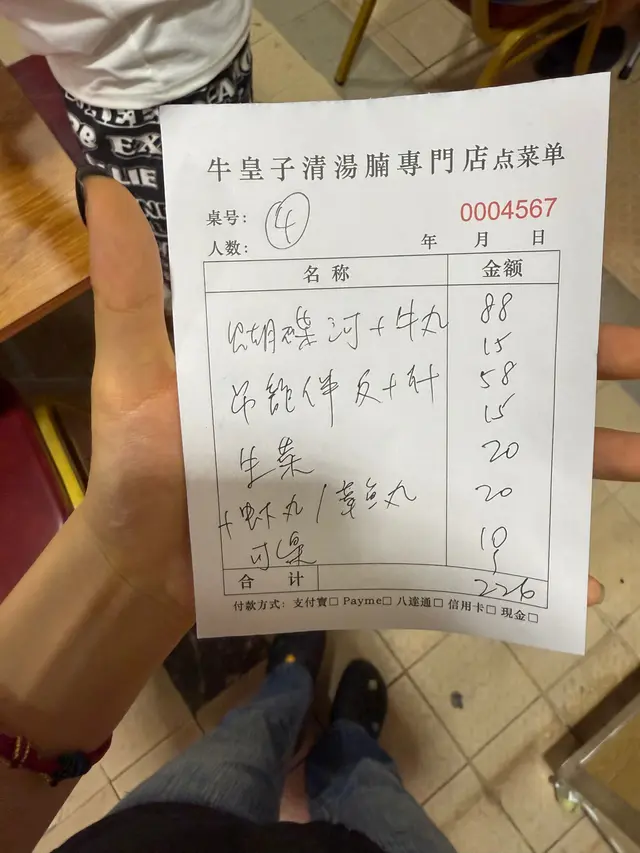 牛皇子清湯腩專門店点菜单
桌号: ④
0004567
人数:
年 月 日
名 称 金额
蝴蝶河+牛丸 88
15
58
15
生菜 20
+虾丸/章鱼丸 20
可樂 10
合 计 226
付款方式: 支付寶□ Payme□ 八達通□ 信用卡□ 現金□